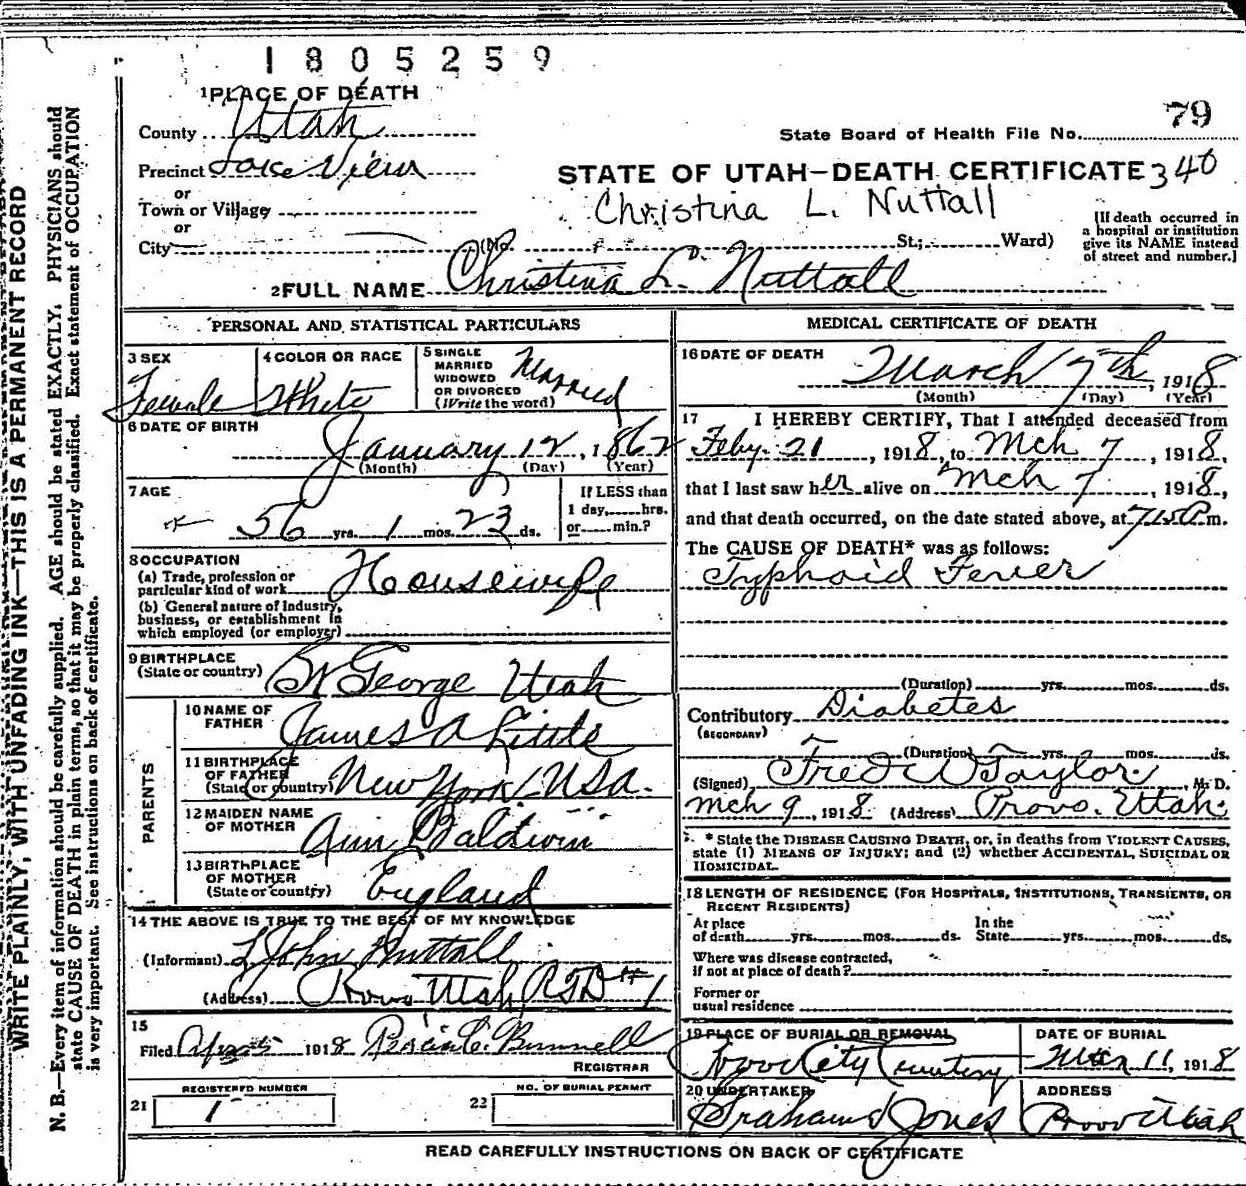 1805259
1 PLACE OF DEATH
79
County Utah
State Board of Health File No.
Precinct Lake View
STATE OF UTAH—DEATH CERTIFICATE 340
or
Town or Village
Christina L. Nuttall
or
City (No. St.; Ward)
[If death occurred in
a hospital or institution
give its NAME instead
of street and number.]
2 FULL NAME Christina L. Nuttall
PERSONAL AND STATISTICAL PARTICULARS
3 SEX
Female
4 COLOR OR RACE
White
5 SINGLE
MARRIED
WIDOWED
OR DIVORCED
(Write the word)
Married
6 DATE OF BIRTH
January 12, 1862
(Month) (Day) (Year)
7 AGE
56 yrs. 1 mos. 23 ds.
If LESS than
1 day, hrs.
or min.?
8 OCCUPATION
(a) Trade, profession or
particular kind of work Housewife
(b) General nature of Industry,
business, or establishment in
which employed (or employer)
9 BIRTHPLACE
(State or country) St George Utah
PARENTS
10 NAME OF
FATHER James A Little
11 BIRTHPLACE
OF FATHER
(State or country) New York USA.
12 MAIDEN NAME
OF MOTHER Ann Baldwin
13 BIRTHPLACE
OF MOTHER
(State or country) England
14 THE ABOVE IS TRUE TO THE BEST OF MY KNOWLEDGE
(Informant) L John Nuttall
(Address) Provo, Utah, RFD #1
15
Filed Apr 5 1918 Bunnell
REGISTRAR
REGISTERED NUMBER
21 1
NO. OF BURIAL PERMIT
22
MEDICAL CERTIFICATE OF DEATH
16 DATE OF DEATH
March 7th, 1918
(Month) (Day) (Year)
17 I HEREBY CERTIFY, That I attended deceased from
Feby. 21, 1918, to Mch 7, 1918,
that I last saw her alive on Mch 7, 1918,
and that death occurred, on the date stated above, at 715P m.
The CAUSE OF DEATH* was as follows:
Typhoid Fever
(Duration) yrs. mos. ds.
Contributory Diabetes
(SECONDARY)
(Duration) yrs. mos. ds.
(Signed) Fred W Taylor, M. D.
Mch 9, 1918. (Address) Provo. Utah.
* State the DISEASE CAUSING DEATH, or, in deaths from VIOLENT CAUSES,
state (1) MEANS OF INJURY; and (2) whether ACCIDENTAL, SUICIDAL OR
HOMICIDAL.
18 LENGTH OF RESIDENCE (FOR HOSPITALS, INSTITUTIONS, TRANSIENTS, OR
RECENT RESIDENTS)
At place
of death yrs. mos. ds.
In the
State yrs. mos. ds.
Where was disease contracted,
if not at place of death?
Former or
usual residence
19 PLACE OF BURIAL OR REMOVAL
Provo City Cemetery
DATE OF BURIAL
Mar 11, 1918
20 UNDERTAKER
Graham & Jones
ADDRESS
Provo Utah
READ CAREFULLY INSTRUCTIONS ON BACK OF CERTIFICATE
WRITE PLAINLY, WITH UNFADING INK—THIS IS A PERMANENT RECORD
N. B.—Every item of information should be carefully supplied. AGE should be stated EXACTLY. PHYSICIANS should
state CAUSE OF DEATH in plain terms, so that it may be properly classified. Exact statement of OCCUPATION
is very important. See instructions on back of certificate.